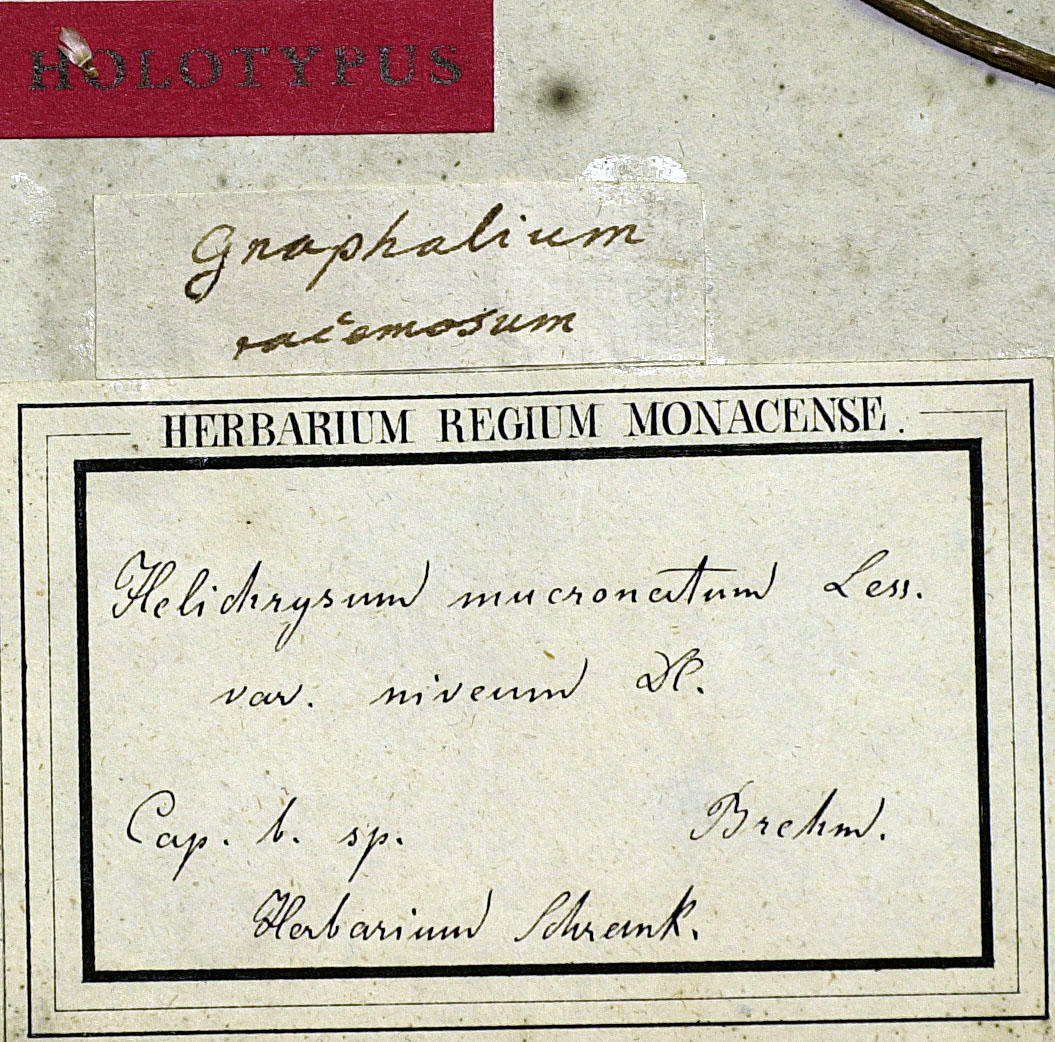 HOLOTYPUS
Gnaphalium
racemosum
HERBARIUM REGIUM MONACENSE.
Helichrysum mucronatum Less.
var. niveum DC.
Cap. b. sp. Brehm.
Herbarium Schrank.